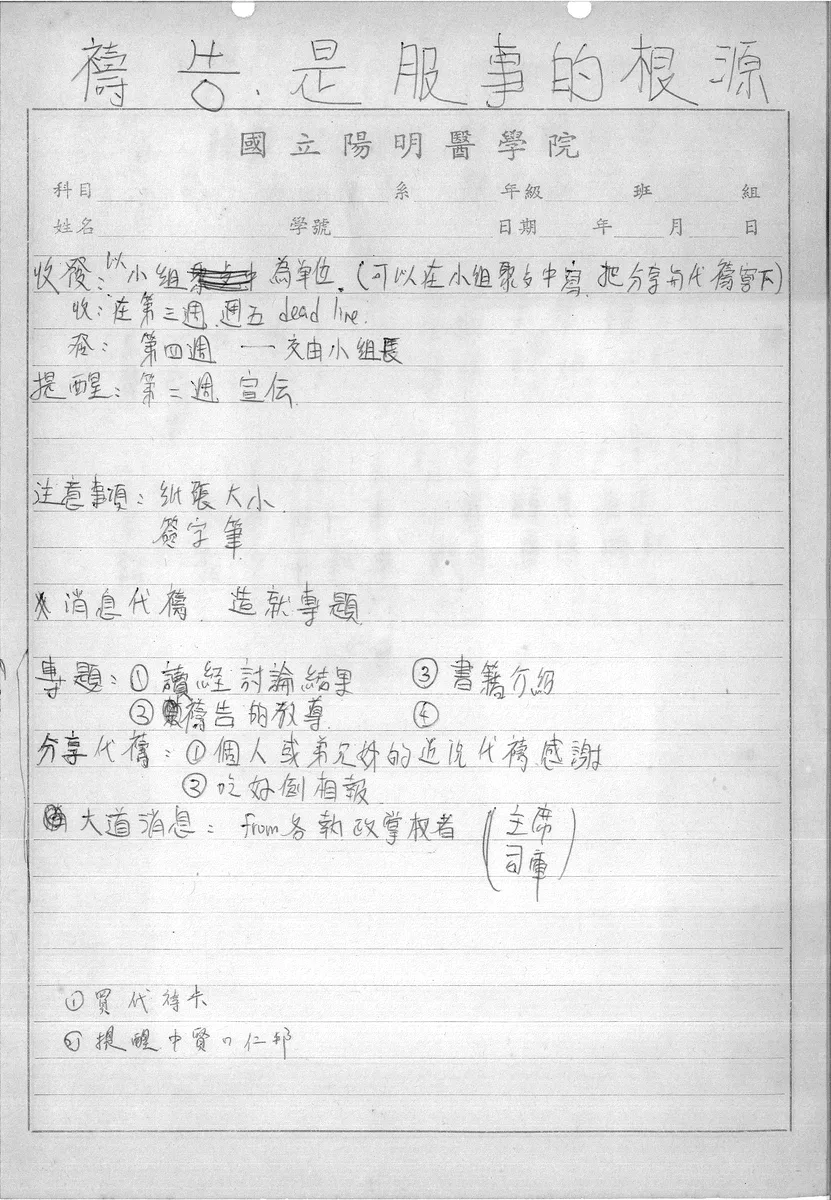 禱告是服事的根源
國立陽明醫學院
科目 系 年級 班 組
姓名 學號 日期 年 月 日
收發：以小組為單位.（可以在小組聚会中寫 把分享和代禱寫下）
收：在第三週 週五 dead line.
發：第四週 — 交由小組長
提醒：第二週 宣伝
注意事項：紙張大小
簽字筆
消息代禱 造就專題
專題：① 讀經討論結果 ③ 書籍介紹
② 禱告的教導 ④
分享代禱：① 個人或弟兄姊的近況代禱感謝
② 吃好倒相報
大道消息：from各執政掌权者（主席
司庫）
① 買代禱卡
② 提醒中賢 仁邦